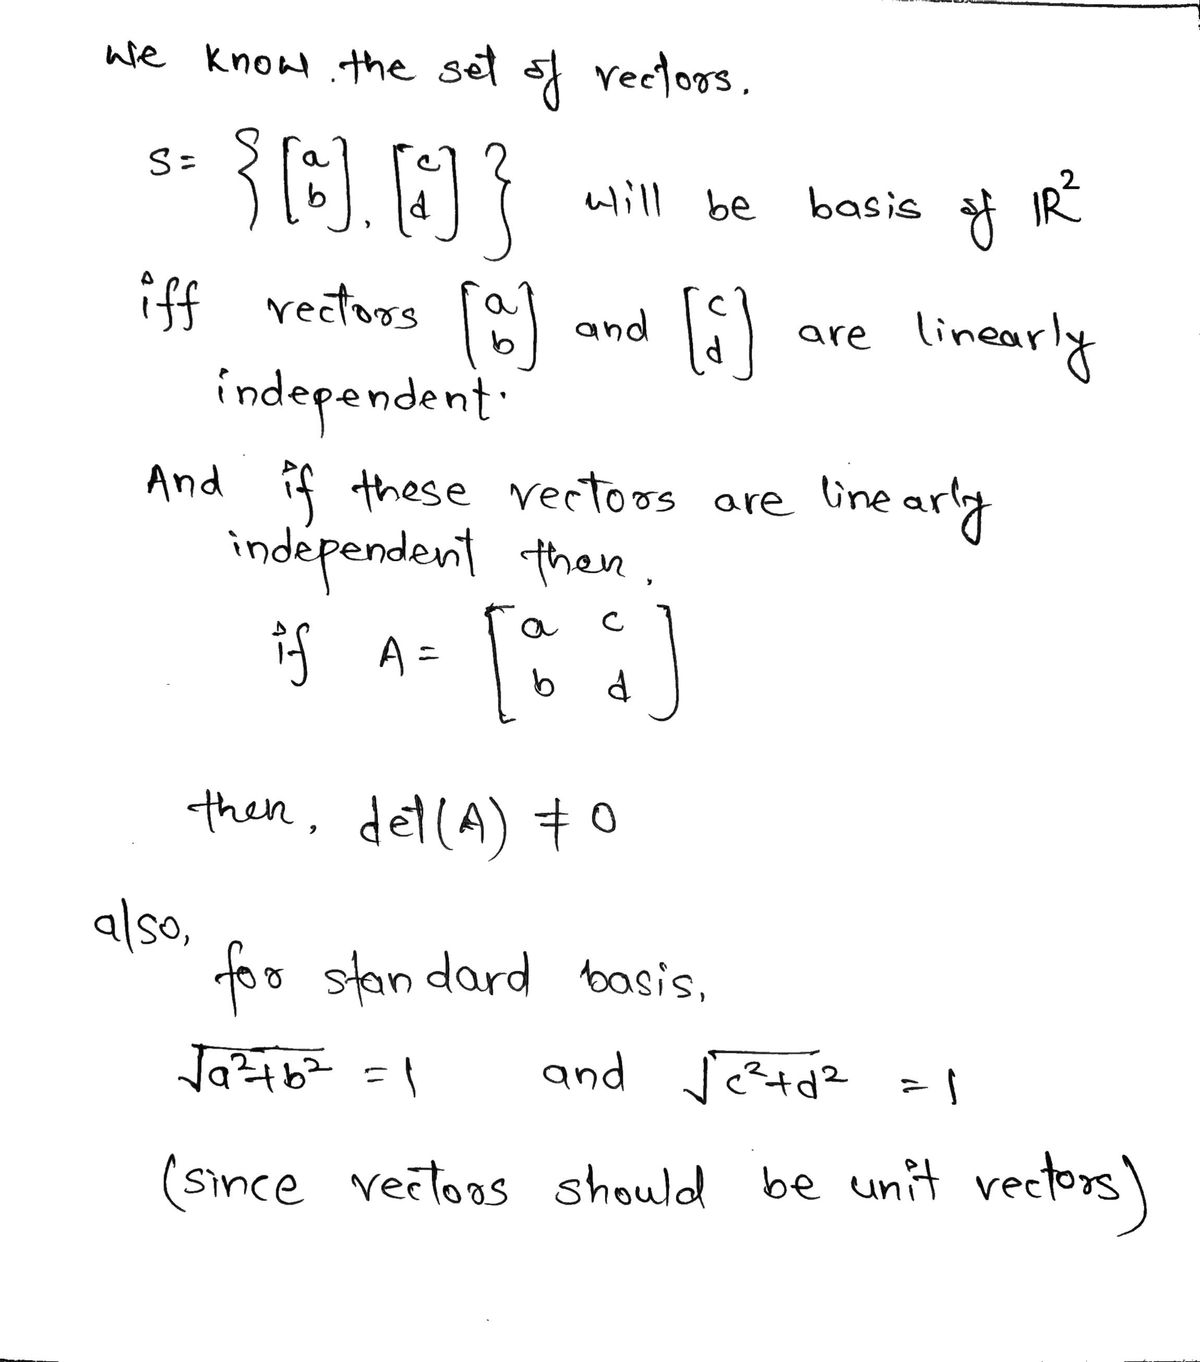 We know the set of vectors.
S = { [a b], [c d] } will be basis of ℝ²
iff vectors [a b] and [c d] are linearly
independent.
And if these vectors are linearly
independent then,
if A = [a c
b d]
then, det(A) ≠ 0
also,
for standard basis,
√a²+b² = 1 and √c²+d² = 1
(since vectors should be unit vectors)